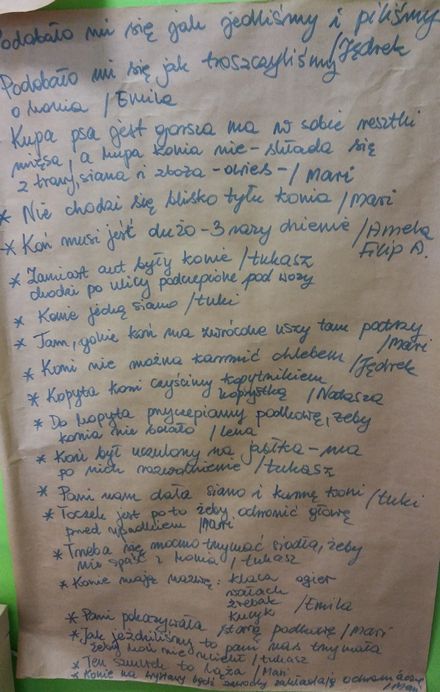 Podobało mi się jak jedliśmy i piliśmy
/Jędrek
Podobało mi się jak troszczyliśmy
o konia / Emila
Kupa psa jest gorsza ma w sobie resztki
mięsa, a kupa konia nie - składa się
z trawy, siana i zboża - owies - / Mari
* Nie chodzi się blisko tyłu konia / Mari
* Koń musi jeść dużo - 3 razy dziennie / Amelia
Filip A.
* Zamiast aut były konie / Łukasz
chodzi po ulicy podczepione pod wozy
* Konie jedzą siano / Łuki
* Tam, gdzie koń ma zwrócone uszy tam patrzy
/ Mari
* Koni nie można karmić chlebem / Jędrek
* Kopyta koni czyścimy kopytnikiem
kopystką / Natasza
* Do kopyta przyczepiamy podkowę, żeby
konia nie bolało / Lena
* Koń był uczulony na jabłka - ma
po nich rozwolnienie / Łukasz
* Pani nam dała siano i karmę koni / Łuki
* Toczek jest po to żeby ochronić głowę
przed upadkiem / Mari
* Trzeba się mocno trzymać siodła, żeby
nie spaść z konia / Łukasz
* Konie mają nazwę: klacz ogier
wałach
źrebak / Emila
kucyk
* Pani pokazywała starą podkowę / Mari
* Jak jeździliśmy to pani nas trzymała
żeby koń nie uciekł / Łukasz
* Ten sznurek to lonża / Mari
* Konie na wystawy będą zawody zakładają ochraniacze
/ Mari